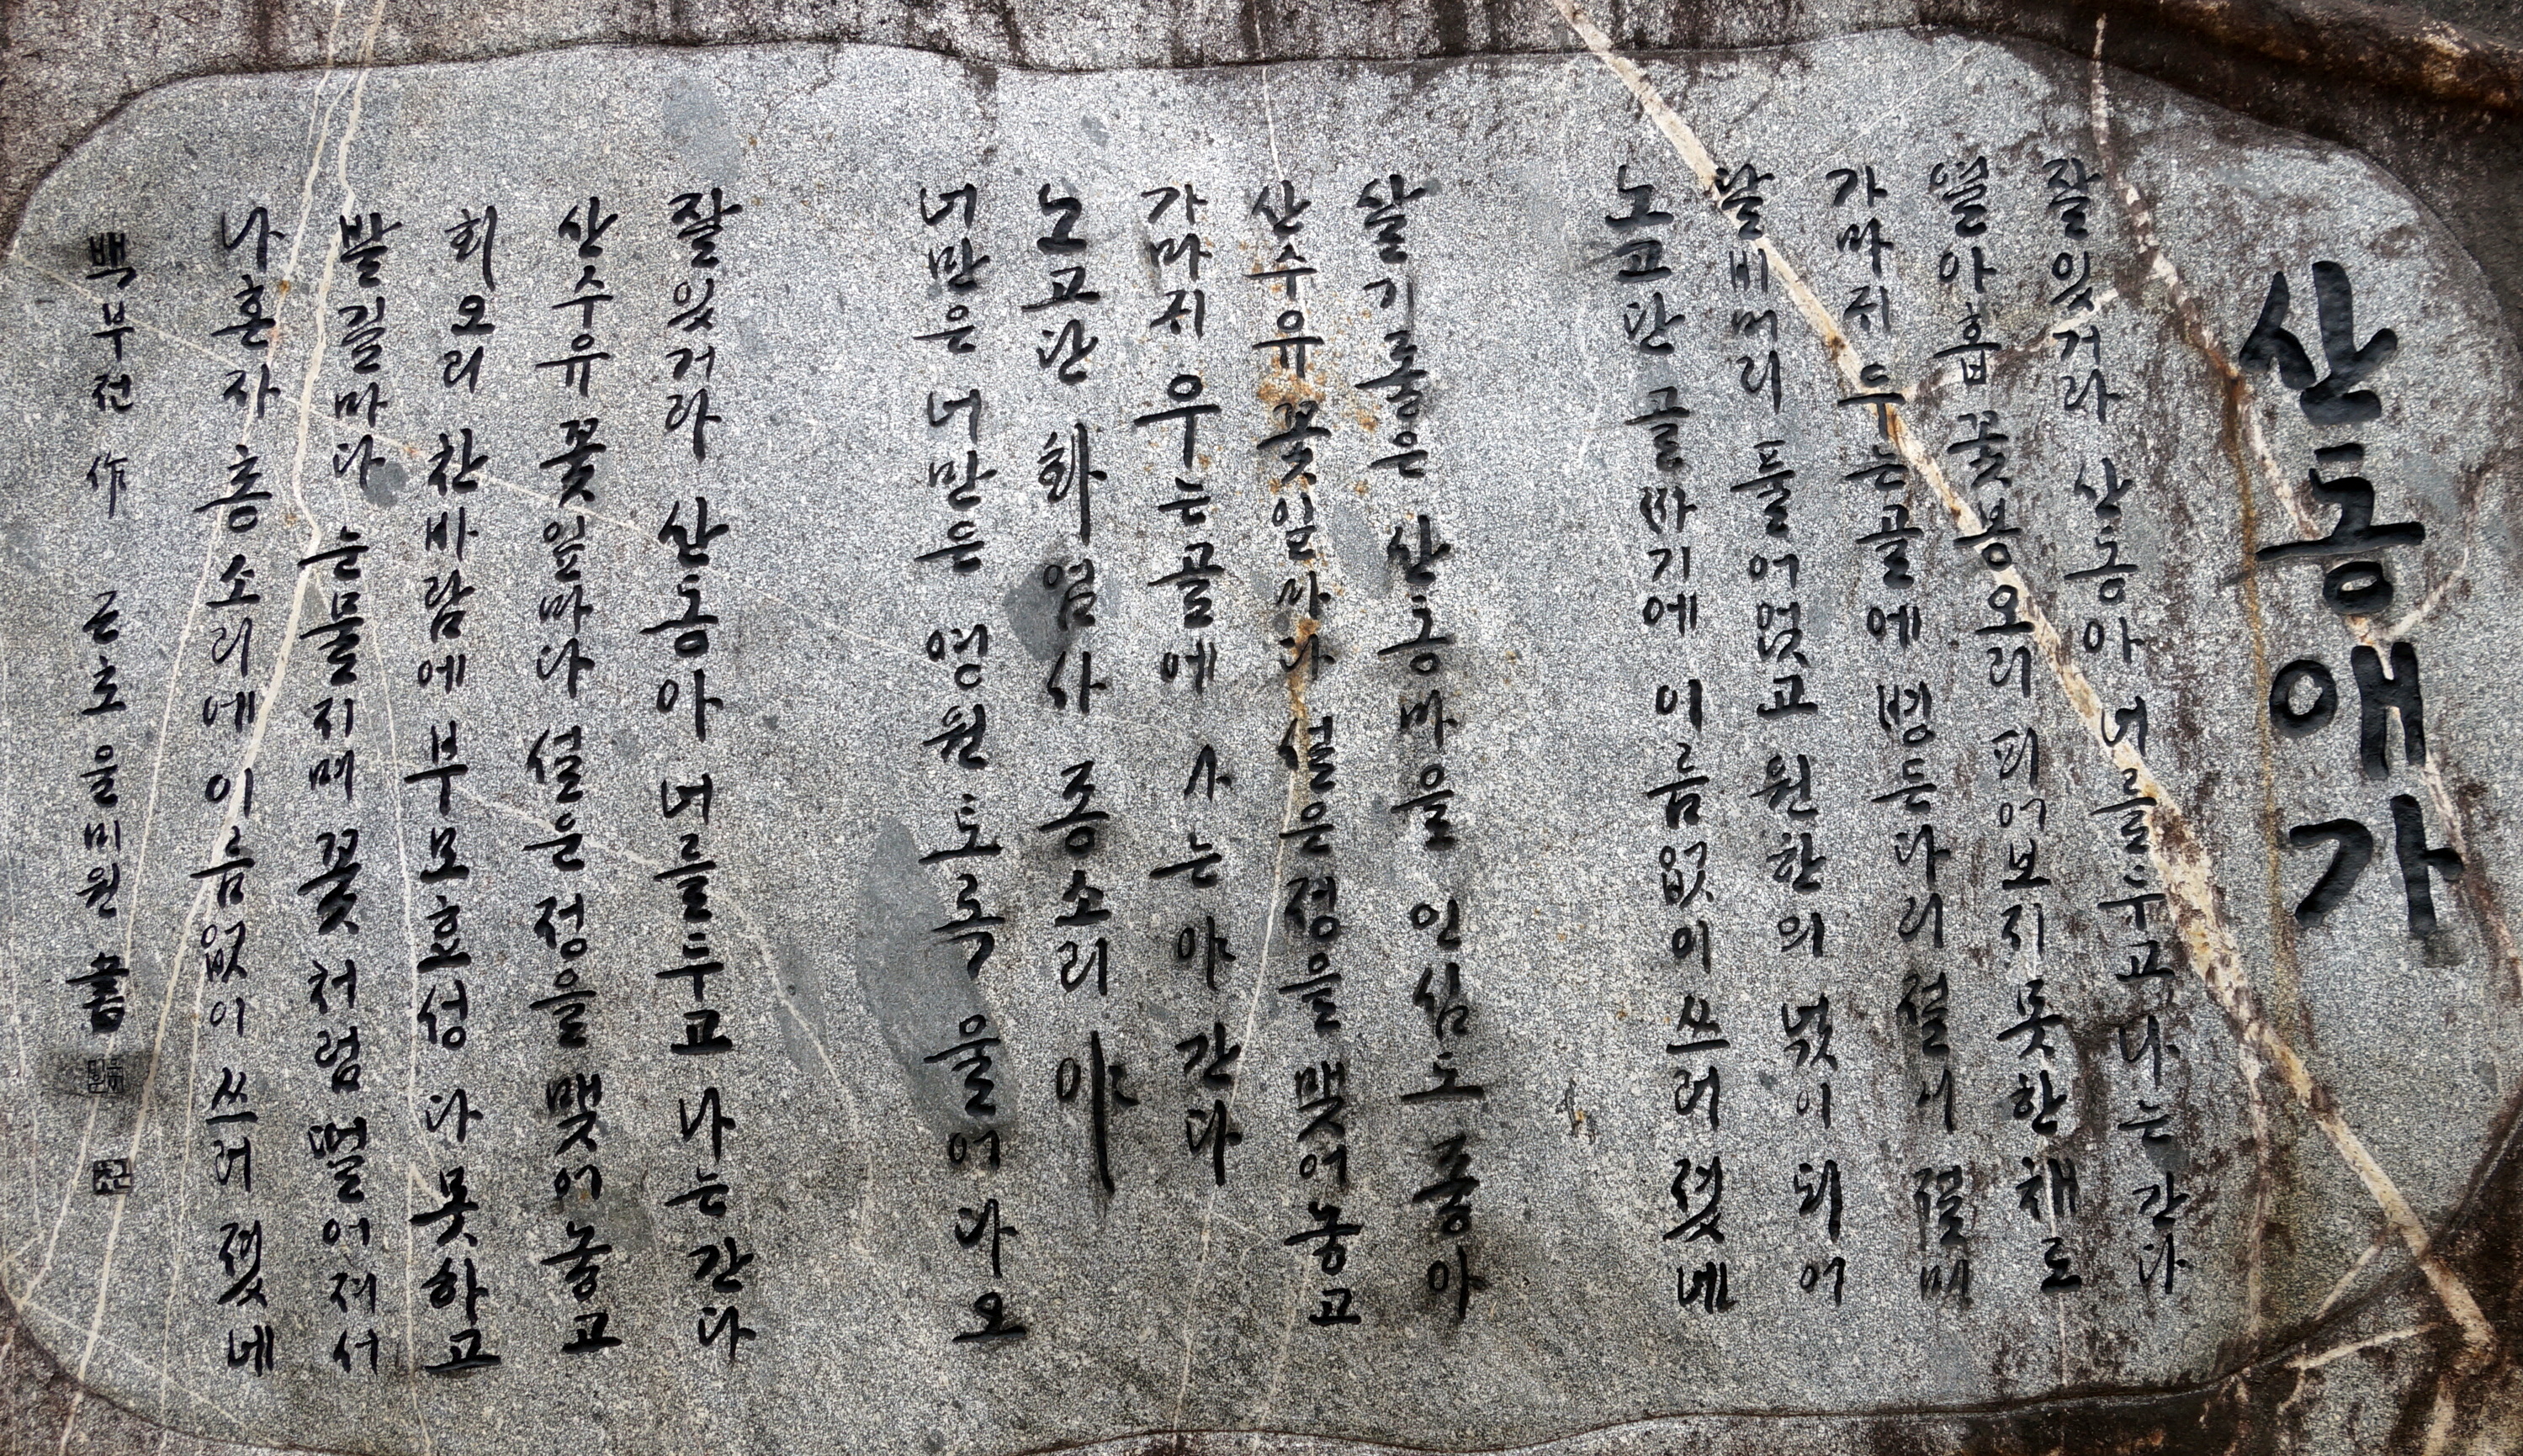 산동애가
잘있거라 산동아 너를두고 나는간다
열아홉 꽃봉오리 피어보지 못한채로
가마귀 우는골에 병든다리 절며 절며
달비머리 풀어얹고 원한의 넋이 되어
노고단 골짜기에 이름없이 쓰러졌네
살기좋은 산동마을 인심도 좋아
산수유 꽃잎마다 설운정을 맺어놓고
가마귀 우는골에 나는야 간다
노고단 화엄사 종소리야
너만은 너만은 영원토록 울어다오
잘있거라 산동아 너를두고 나는간다
산수유 꽃잎마다 설운정을 맺어놓고
회오리 찬바람에 부모효성 다못하고
발길마다 눈물지며 꽃처럼 떨어져서
나혼자 총소리에 이름없이 쓰러졌네
백부전 作 근초 윤미원 書